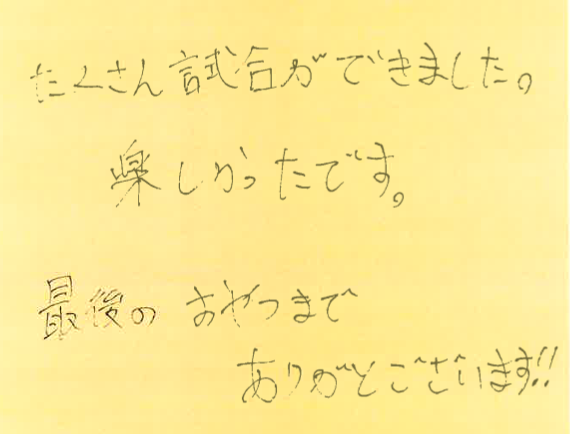 たくさん試合ができました。
楽しかったです。
最後のおやつまで
ありがとございます!!